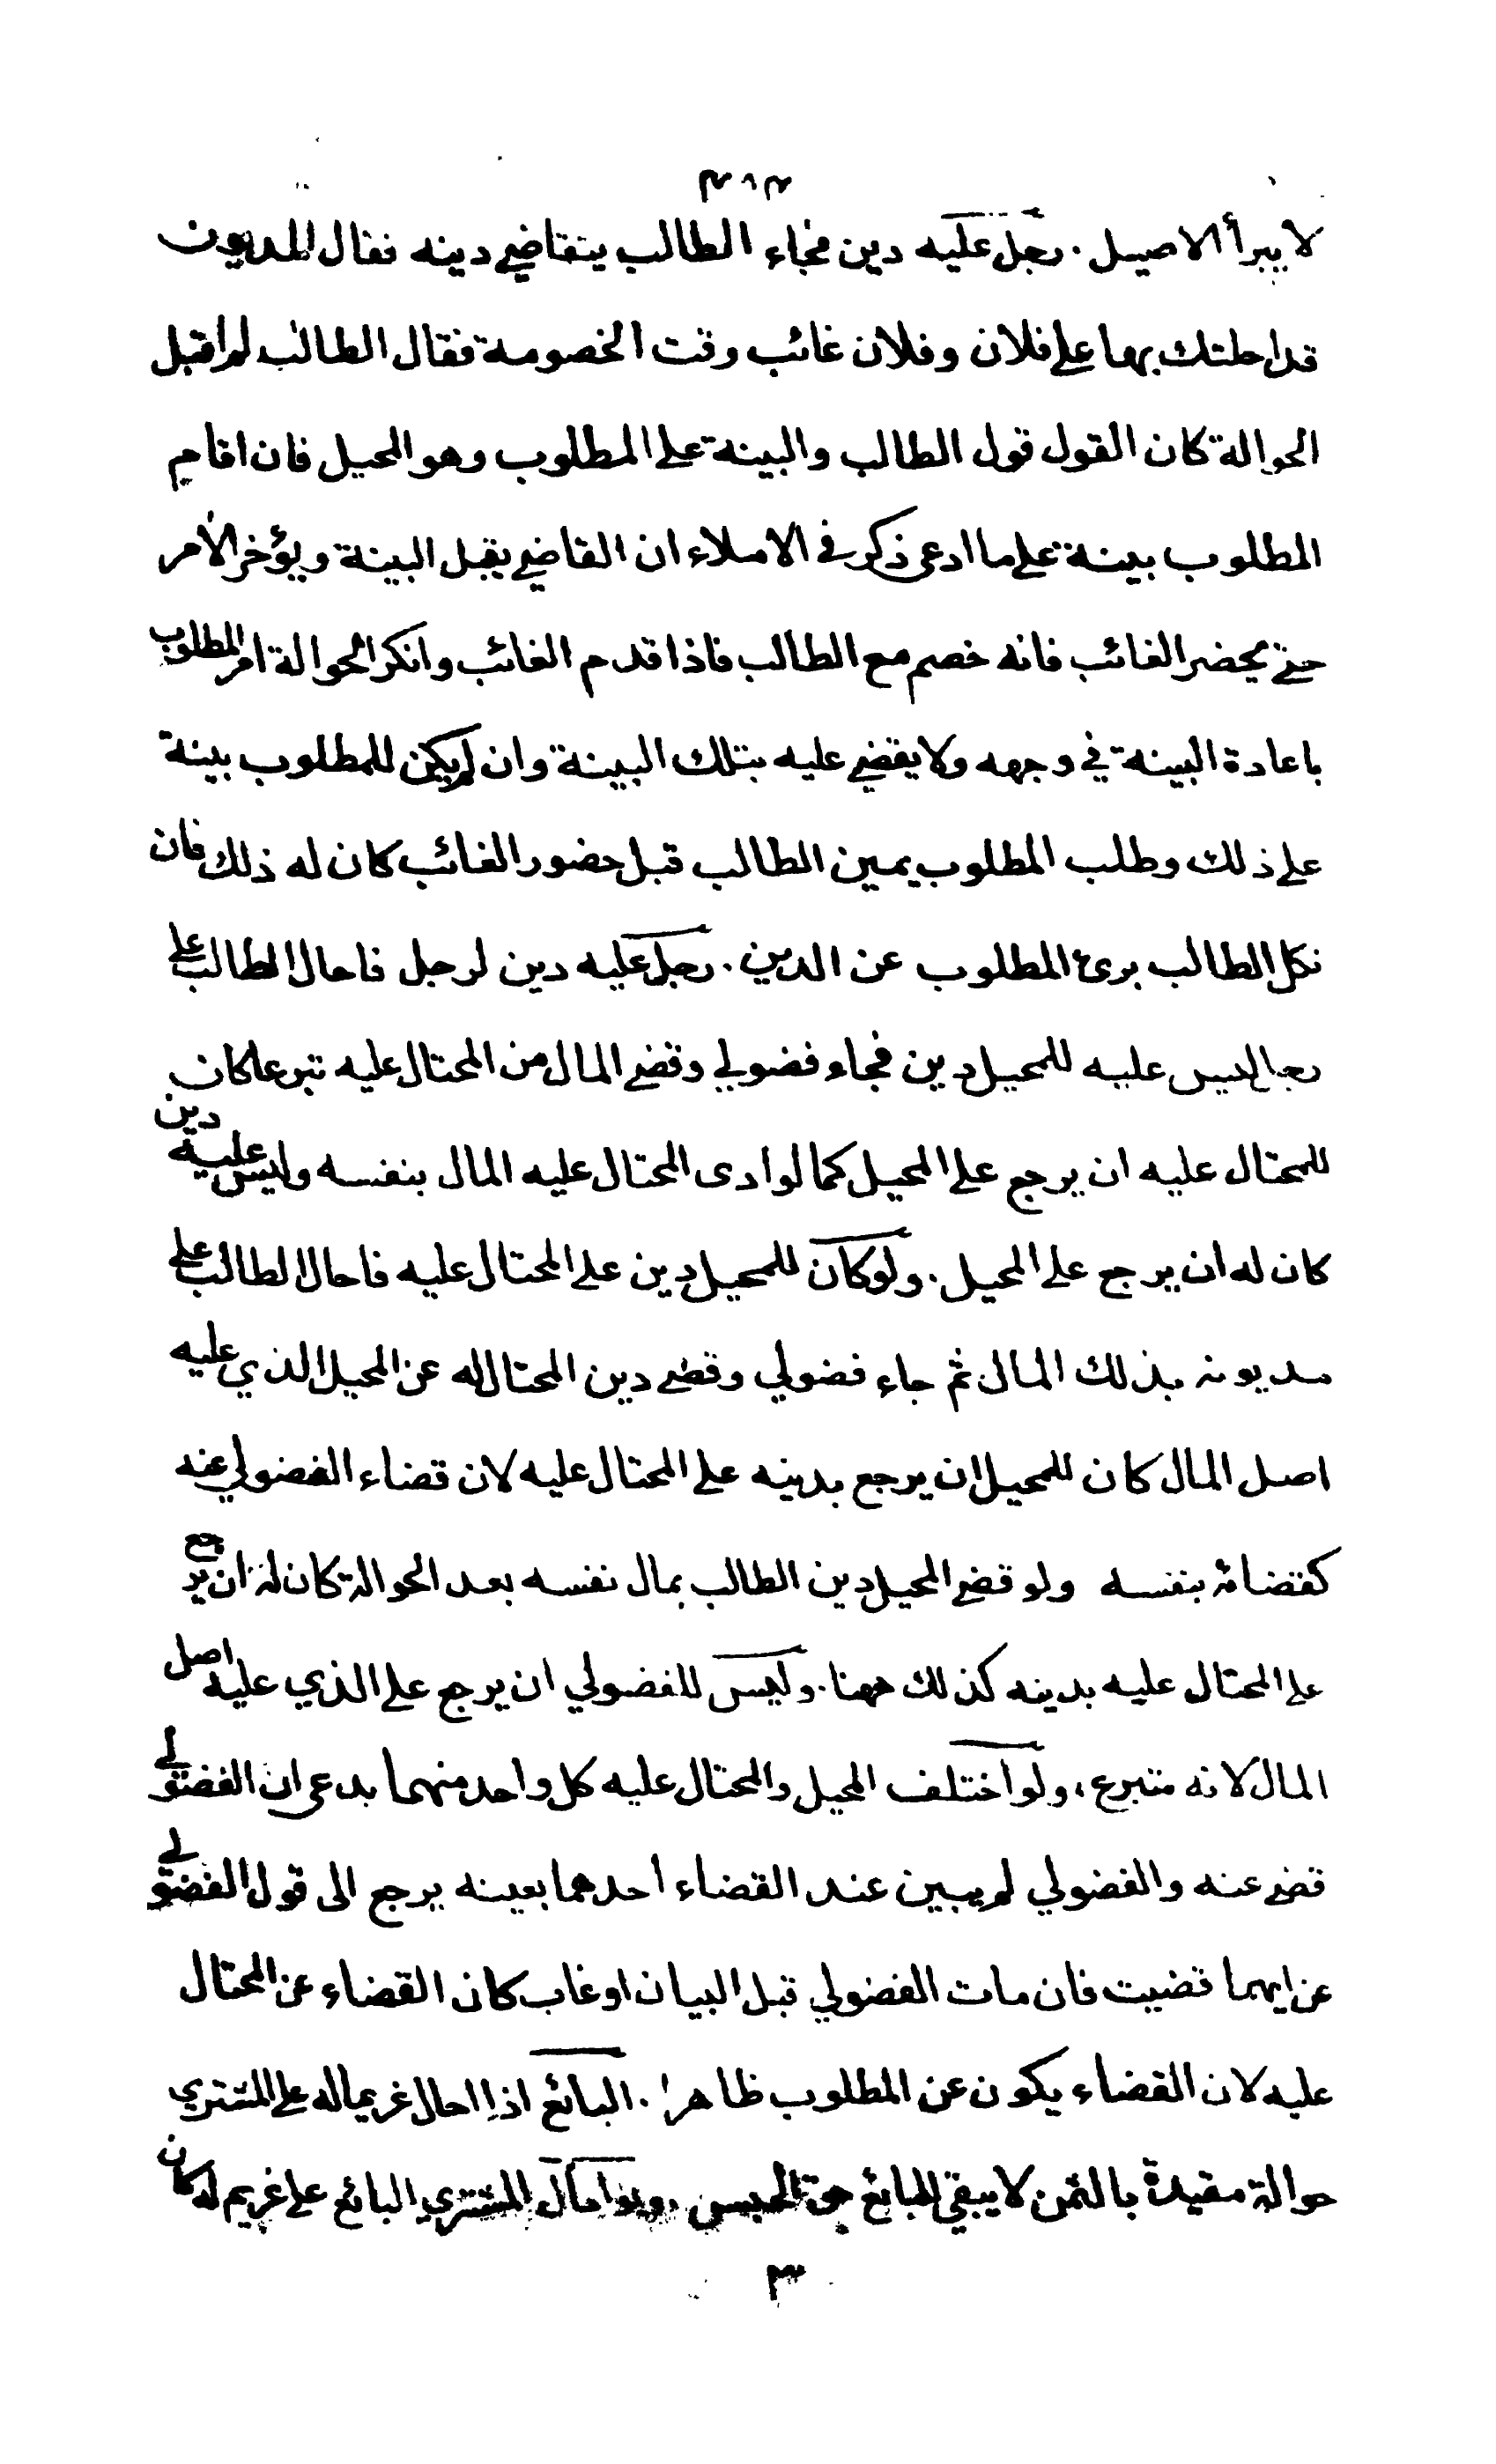 لا يبرأ الاصيل . رجل عليه دين فجاء الطالب يتقاضى دينه فقال المديون
قد احلتك بها على فلان وفلان غائب وقت الخصومة فقال الطالب لم اقبل
الحوالة كان القول قول الطالب والبينة على المطلوب وهو المحيل فان اقام
المطلوب بينة على ما ادعى ذكر في الاملاء ان القاضي يقبل البينة ويؤخر الأمر
حتى يحضر الغائب فانه خصم مع الطالب فاذا قدم الغائب وانكر الحوالة امر المطلوب
باعادة البينة في وجهه ولا يقضى عليه بتلك البينة وان لم يكن للمطلوب بينة
على ذلك وطلب المطلوب يمين الطالب قبل حضور الغائب كان له ذلك فان
نكل الطالب برئ المطلوب عن الدين . رجل عليه دين لرجل فاحال الطالب على
رجل ليس عليه للمحيل دين فجاء فضولي وقضى المال من المحتال عليه تبرعا كان
للمحتال عليه ان يرجع على المحيل كما لو ادى المحتال عليه المال بنفسه وليس عليه دين
كان له ان يرجع على المحيل . ولو كان للمحيل دين على المحتال عليه فاحال الطالب على
مديونه بذلك المال ثم جاء فضولي وقضى دين المحتال له عن المحيل الذي عليه
اصل المال كان للمحيل ان يرجع بدينه على المحتال عليه لان قضاء الفضولي عنه
كقضائه بنفسه ولو قضى المحيل دين الطالب بمال نفسه بعد الحوالة كان له ان يرجع
على المحتال عليه بدينه كذلك ههنا . وليس للفضولي ان يرجع على الذي عليه اصل
المال لانه متبرع ، ولو اختلف المحيل والمحتال عليه كل واحد منهما يدعى ان الفضولي
قضى عنه والفضولي لم يبين عند القضاء احدهما بعينه يرجع الى قول الفضولي
عن ايهما قضيت فان مات الفضولي قبل البيان او غاب كان القضاء عن المحتال
عليه لان القضاء يكون عن المطلوب ظاهرا . البائع اذا احال غريما له على المشتري
حوالة مقيدة بالثمن لا يبقى للبائع حق الحبس . ولو احال المشتري البائع على غريم له كان
٣